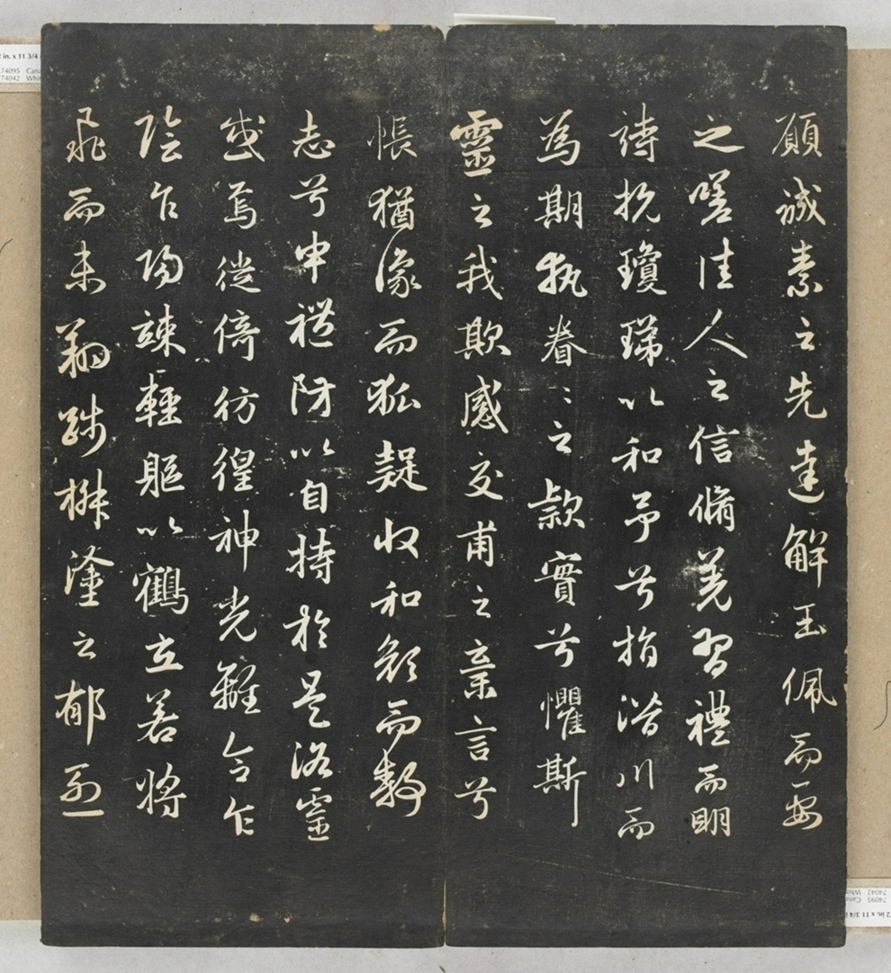 願誠素之先達解玉佩而要
之嗟佳人之信脩羌習禮而明
詩抗瓊珶以和予兮指潛川而
為期執眷〻之款實兮懼斯
靈之我欺感交甫之棄言兮
悵猶豫而狐疑收和顏而靜
志兮申禮防以自持於是洛靈
感焉徙倚彷徨神光離合乍
陰乍陽竦輕軀以鶴立若將
飛而未翔踐椒塗之郁烈
74095
74042